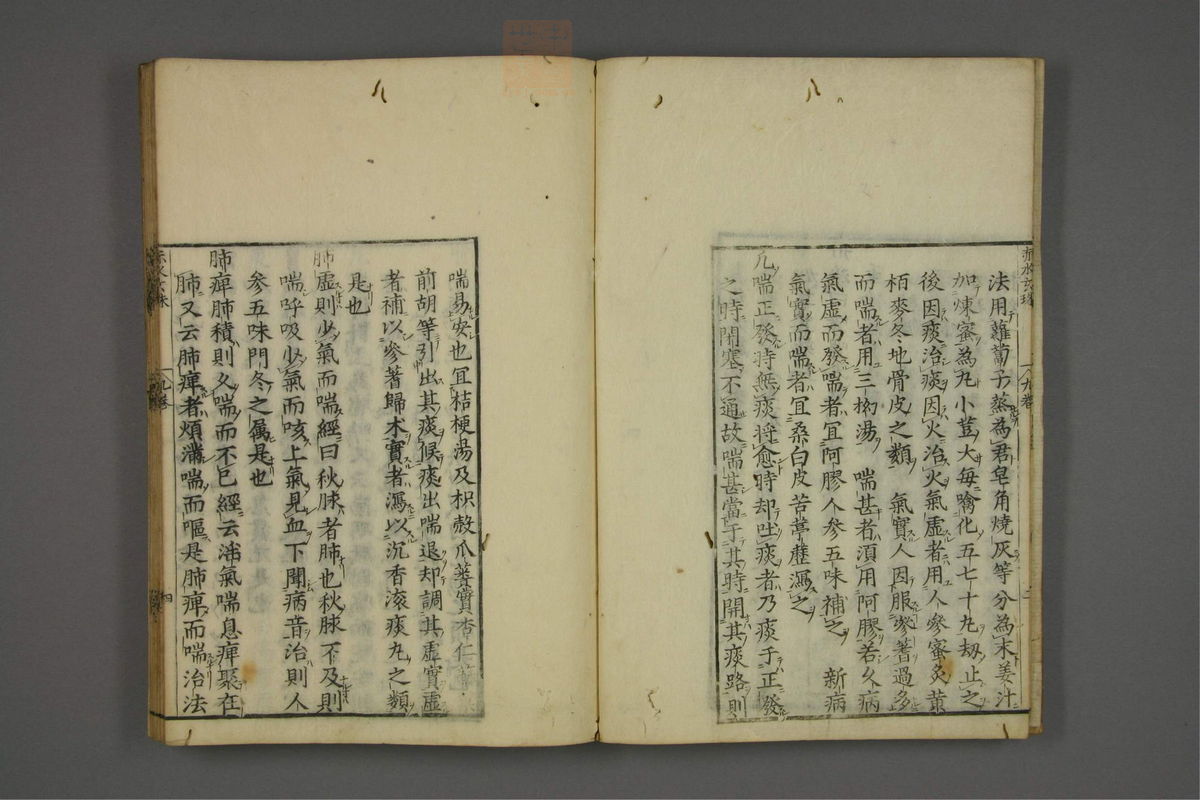 法用蘿蔔子蒸為君皂角燒灰等分為末姜汁
加煉蜜為丸小荳大每噙化五七十丸刼止之
後因痰治痰因火治火氣虛者用人參蜜炙蘗
栢麥冬地骨皮之類　氣實人因服參蓍過多
而喘者用三拗湯　喘甚者須用阿膠若久病
氣虛而發喘者宜阿膠人參五味補之　新病
氣實而喘者宜桑白皮苦葶歷瀉之
凡喘正發時無痰将愈時却吐痰者乃痰于正發
之時閉塞不通故喘甚當于其時開其痰路則
喘易安也宜桔梗湯及枳殼瓜蔞實杏仁
前胡等引出其痰候痰出喘退却調其虛實虛
者補以參蓍歸术實者瀉以沉香滚痰丸之類
是也
肺虛則少氣而喘經曰秋脉者肺也秋脉不及則
喘呼吸少氣而咳上氣見血下聞病音治則人
參五味門冬之属是也
肺痺肺積則久喘而不已經云淫氣喘息痺聚在
肺又云肺痺者煩滿喘而嘔是肺痺而喘治法
赤水玄珠
九卷
四